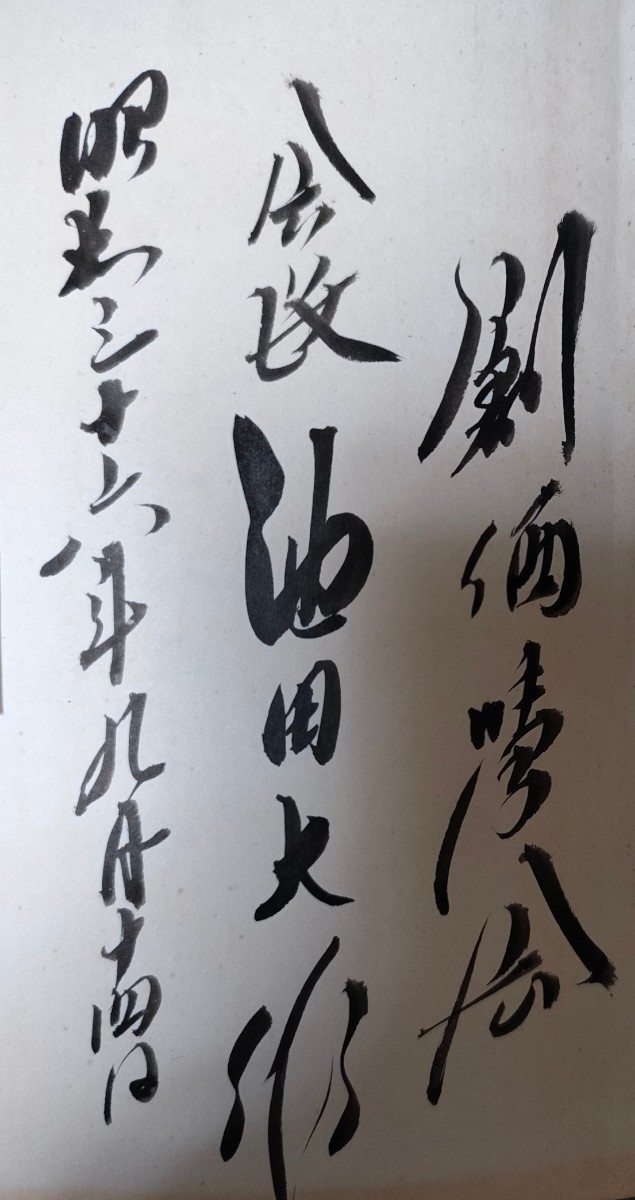 創価学会
会長 池田大作
昭和三十六年九月十四日